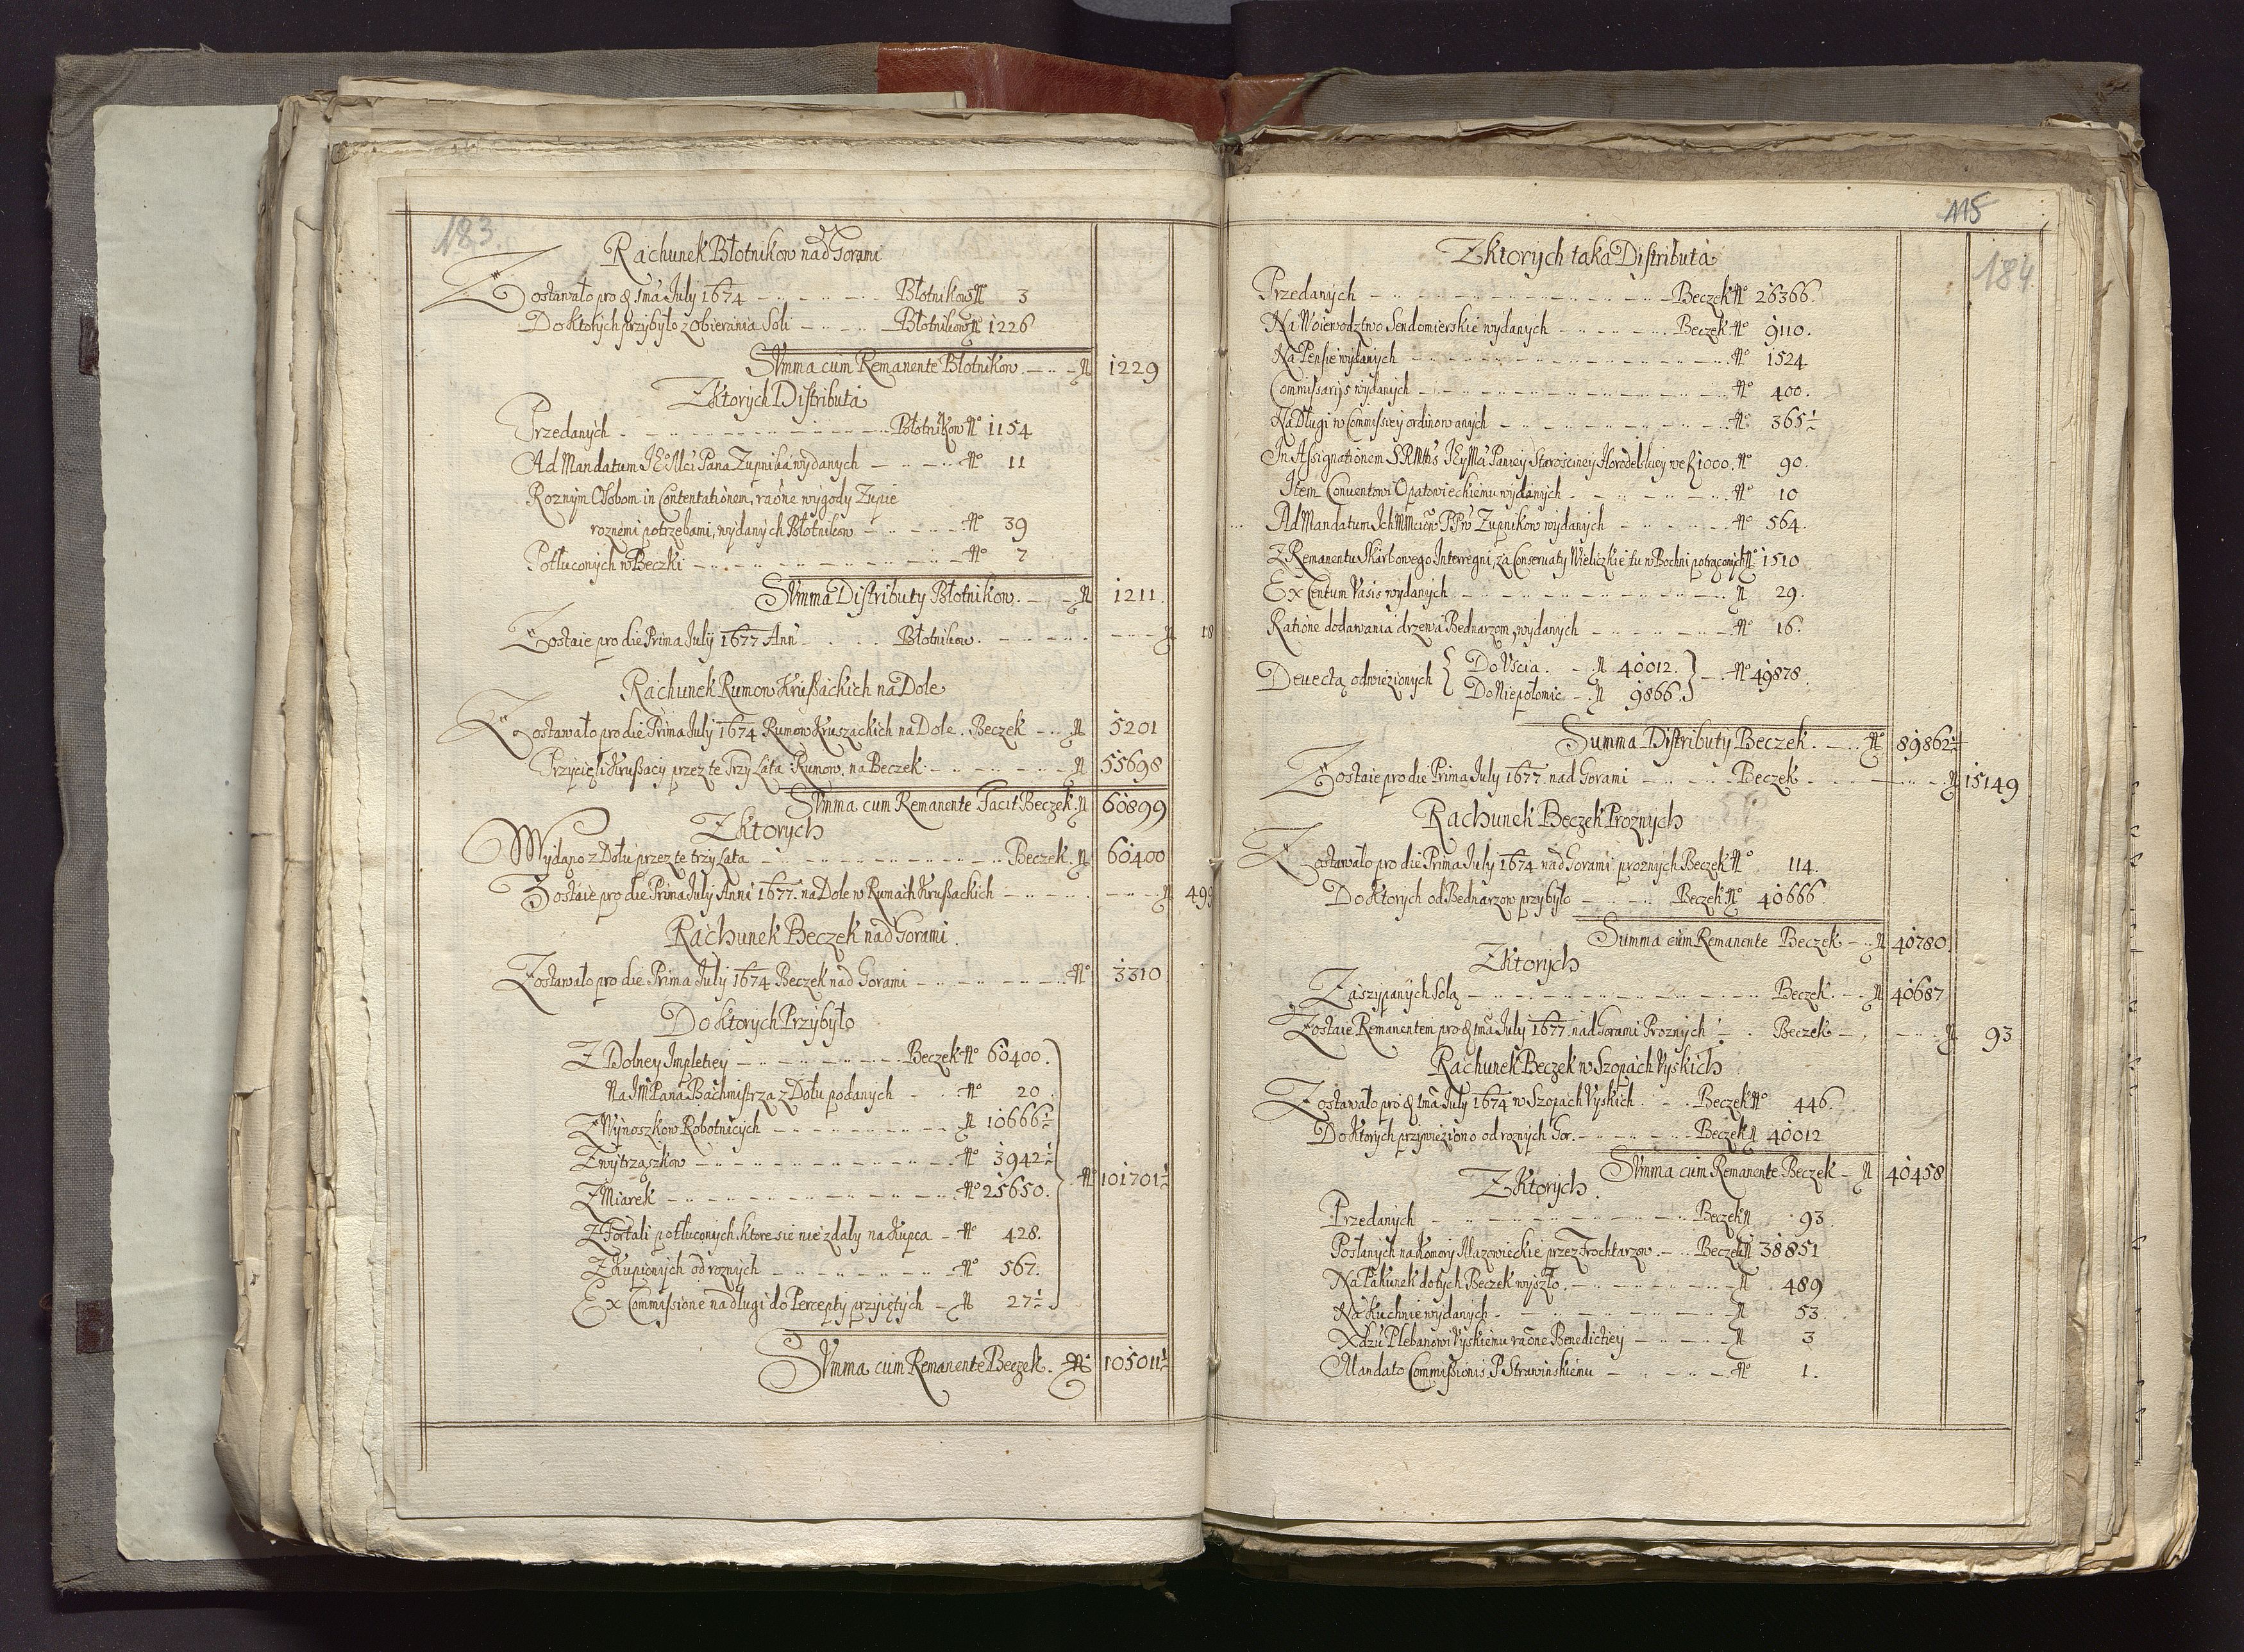 183.
Rachunek Błotnikow nad Gorami
Zostawało pro & 1ma July 1674 Błotnikow No 3
Do Ktorych przybyło z obierania Soli Błotnikow No 1226
Summa cum Remanente Błotnikow No 1229
Z Ktorych Distributa
Przedanych Błotnikow No 1154
Ad Mandatum Pana Zupnika wydanych No 11
Roznym Osobom in Contentationem, raōne wygody Zupie
roznemi potrzebami, wydanych Błotnikow No 39
Potłuconych w Beczki No 7
Summa Distributy Błotnikow No 1211
Zostaie pro die Prima July 1677 Ann Błotnikow No 18
Rachunek Rumow Krußackich na Dole
Zostawało pro die Prima July 1674 Rumow Kruszackich na Dole. Beczek No 5201
Przycięli Krußacy przez te Trzy Lata Rumow. na Beczek No 55698
Summa cum Remanente Facit Beczek No 60899
Z Ktorych
Wydano z Dołu przez te trzy Lata Beczek No 60400
Zostaie pro die Prima July Anni 1677. na Dole w Rumach Krußackich No 499
Rachunek Beczek nad Gorami.
Zostawało pro die Prima July 1674 Beczek nad Gorami No 3310
Do Ktorych Przybyło
Z Dolney Impletiey Beczek No 60400.
Na JM Pana Bachmistrza z Dołu podanych No 20
Z Wynoszkow Robotniczych No 10666½
Z wytrząszkow No 3942½
No 101701½
Z Miarek No 25650.
Z Fortali potłuconych. ktore sie nie zdały na Kupca No 428.
Z Kupionych od roznych No 567.
Ex Commissione na długi do Percepty przyiętych No 27½
Summa cum Remanente Beczek. No 105011½
115
184.
Z Ktorych taka Distributa
Przedanych Beczek No 26366.
Na Woiewodztwo Sendomierskie wydanych Beczek No 9110.
Na Pensie wydanych No 1524
Commissarijs wydanych No 400.
Na Długi w Commissiey ordinowanych No 365½
In Assignationem SRMtis JEyMci Paniey Starosciney Horodelskiey we f 1000. No 90.
Item Conuentowi Opatowieckiemu wydanych No 10
Ad Mandatum Ich Mmciow PPw Zupnikow wydanych No 564.
Z Remanentu Skarbowego Interregni, za Conseruaty Wieliczkie tu w Bochni potrąconych No 1510
Ex Centum Vasis wydanych No 29.
Ratione dodawania drzewa Bednarzom, wydanych No 16.
Deuectą odwieżionych { Do Vscia. No 40012. } No 49878.
Do Niepołomic No 9866.
Summa Distributy Beczek. No 89862½
Zostaie pro die Prima July 1677. nad Gorami Beczek No 15149
Rachunek Beczek Proznych
Zostawało pro die Prima July 1674 nad Gorami proznych Beczek No 114.
Do Ktorych od Bednarzow przybyło Beczek No 40666.
Summa cum Remanente Beczek No 40780.
Z Ktorych
Zaszypanych Solą Beczek. No 40687
Zostaie Remanentem pro & 1ma July 1677. nad Gorami Proznych Beczek No 93
Rachunek Beczek w Szopach Vyskich
Zostawało pro & 1ma July 1674 w Szopach Vyskich. Beczek No 446.
Do Ktorych przywieziono od roznych Gor. Beczek No 40012
Summa cum Remanente Beczek No 40458
Z Ktorych.
Przedanych Beczek No 93.
Posłanych na Komory Mazowieckie przez Frochtarzow. Beczek No 38851
Na Pakunek do tych Beczek wyszło. No 489
Na Kuchnie wydanych. No 53.
Xdzu Plebanowi Vyskiemu raōne Benedictiey No 3
Mandato Commissionis P. Strawinskiemu No 1.